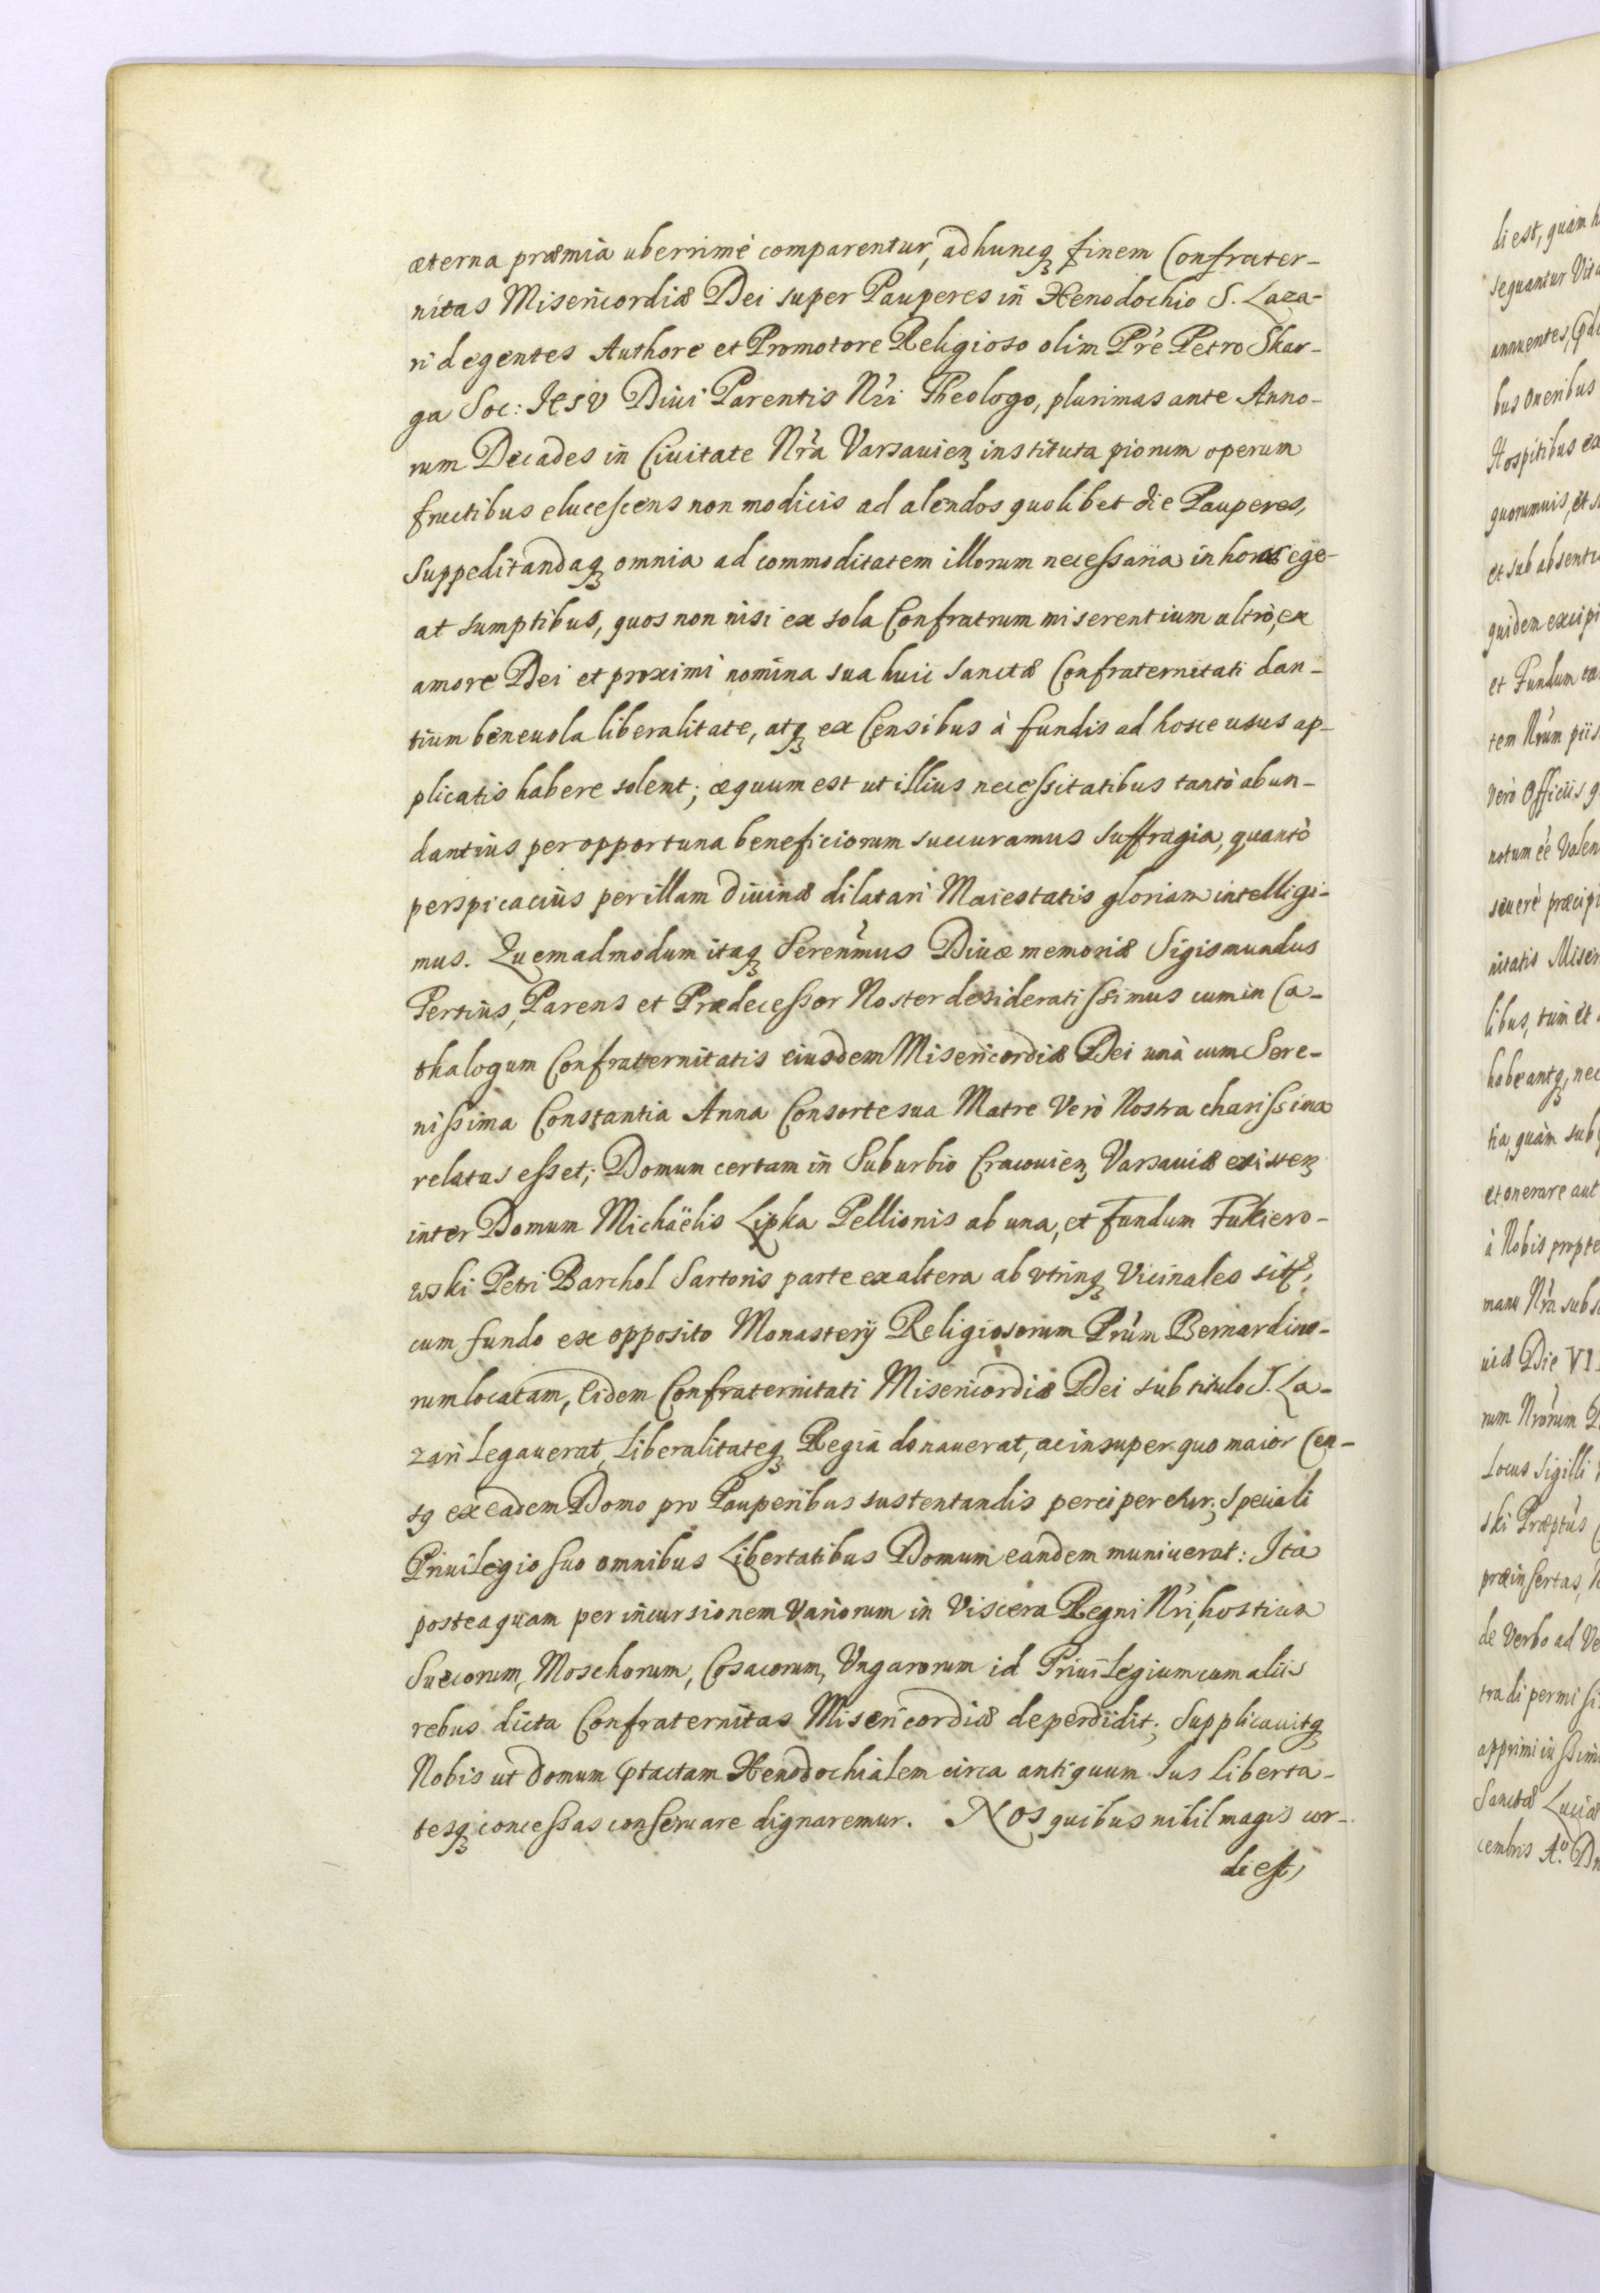 æterna præmia uberrimè comparentur, ad huncq́ finem Confrater-
nitas Misericordiæ Dei super Pauperes in Xenodochio S. Laza-
ri degentes Authore et Promotore Religioso olim Pr̃e Petro Skar-
ga Soc: JESV Diui Parentis Nr̃i Theologo, plurimas ante Anno-
rum Decades in Ciuitate Nr̃a Varsauieꝫ instituta piorum operum
fructibus elucescens non modicis ad alendos quolibet die Pauperes,
Suppeditandaqꝫ omnia ad commoditatem illorum necessaria in horas ege-
at sumptibus, quos non nisi ex sola Confratrum miserentium ultrò, ex
amore Dei et proximi nomina sua huic sanctæ Confraternitati dan-
tium beneuola liberalitate, atqꝫ ex Censibus à fundis ad hosce usus ap-
plicatis habere solent; æquum est ut illius necessitatibus tantò abun-
dantius per opportuna beneficiorum succuramus suffragia, quantò
perspicacius per illam diuinæ dilatari Maiestatis gloriam intelligi-
mus. Quemadmodum itaqꝫ Seren̑mus Diuæ memoriæ Sigismundus
Tertius, Parens et Prædecessor Noster desideratissimus cum in Ca-
thalogum Confratternitatis eiusdem Misericordiæ Dei unà cum Sere-
nissima Constantia Anna Consorte sua Matre Verò Nostra charissima
relatus esset; Domum certam in Suburbio Cracouieꝫ Varsauiæ existeꝫ
inter Domum Michaëlis Lipka Pellionis ab una, et fundum Fukiero-
wski Petri Barchol Sartoris parte ex altera ab vtrinqꝫ Vicinales sitt̃,
cum fundo ex opposito Monasterij Religiosorum Pr̃um Bernardino-
rum locatam, Eidem Confraternitati Misericordiæ Dei sub titulo S. La-
zari Legauerat, Liberalitateqꝫ Regiâ donauerat, ac insuper quo maior Cen-
sꝰ ex eadem Domo pro Pauperibus sustentandis perciperetur; Speciali
Priuilegio suo omnibus Libertatibus Domum eandem muniuerat: Ita
posteaquam per incursionem Variorum in Viscera Regni Nr̃i, hostium
Suecorum, Moschorum, Cosacorum, Vngarorum id Priuilegium cum aliis
rebus dicta Confraternitas Misericordiæ deperdidit; Supplicauitqꝫ
Nobis ut Domum p̱tactam Xenodochialem circa antiquum Ius Liberta-
tesqꝫ concessas conseruare dignaremur. Nos quibus nihil magis cor-
di est,
di est, quàm
sequantur
annuentes,
bus Oneribus
Hospitibus
quorumuis, et
et sub absentia
quidem
et Fundum
tem Nr̃um piis
Verò Officiis
notum
seuerè
nitatis
libus, tùm et
habeantqꝫ, nec
tia, quàm sub
et onerare aut
à Nobis
manu Nr̃a
uiæ Die
rum Nr̃orum
Locus Sigilli
ski
præinsertas,
de Verbo ad
tradi
Sanctæ Luciæ
cembris Aº.